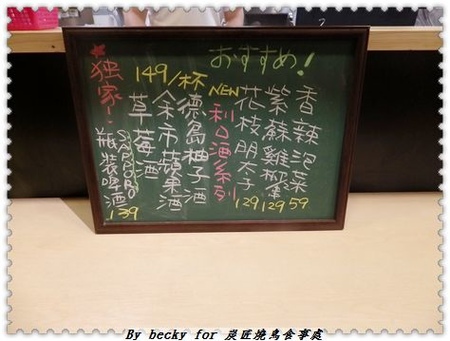 おすすめ!
香辣泡菜 59
紫蘇雞蜜 129
花枝明太子 129
NEW 利口酒系列
149/杯
德島柚子酒
余市蘋果酒
草莓酒
★独家!
SAPPORO
瓶裝啤酒 139
By becky for 炭匠燒鳥食事處